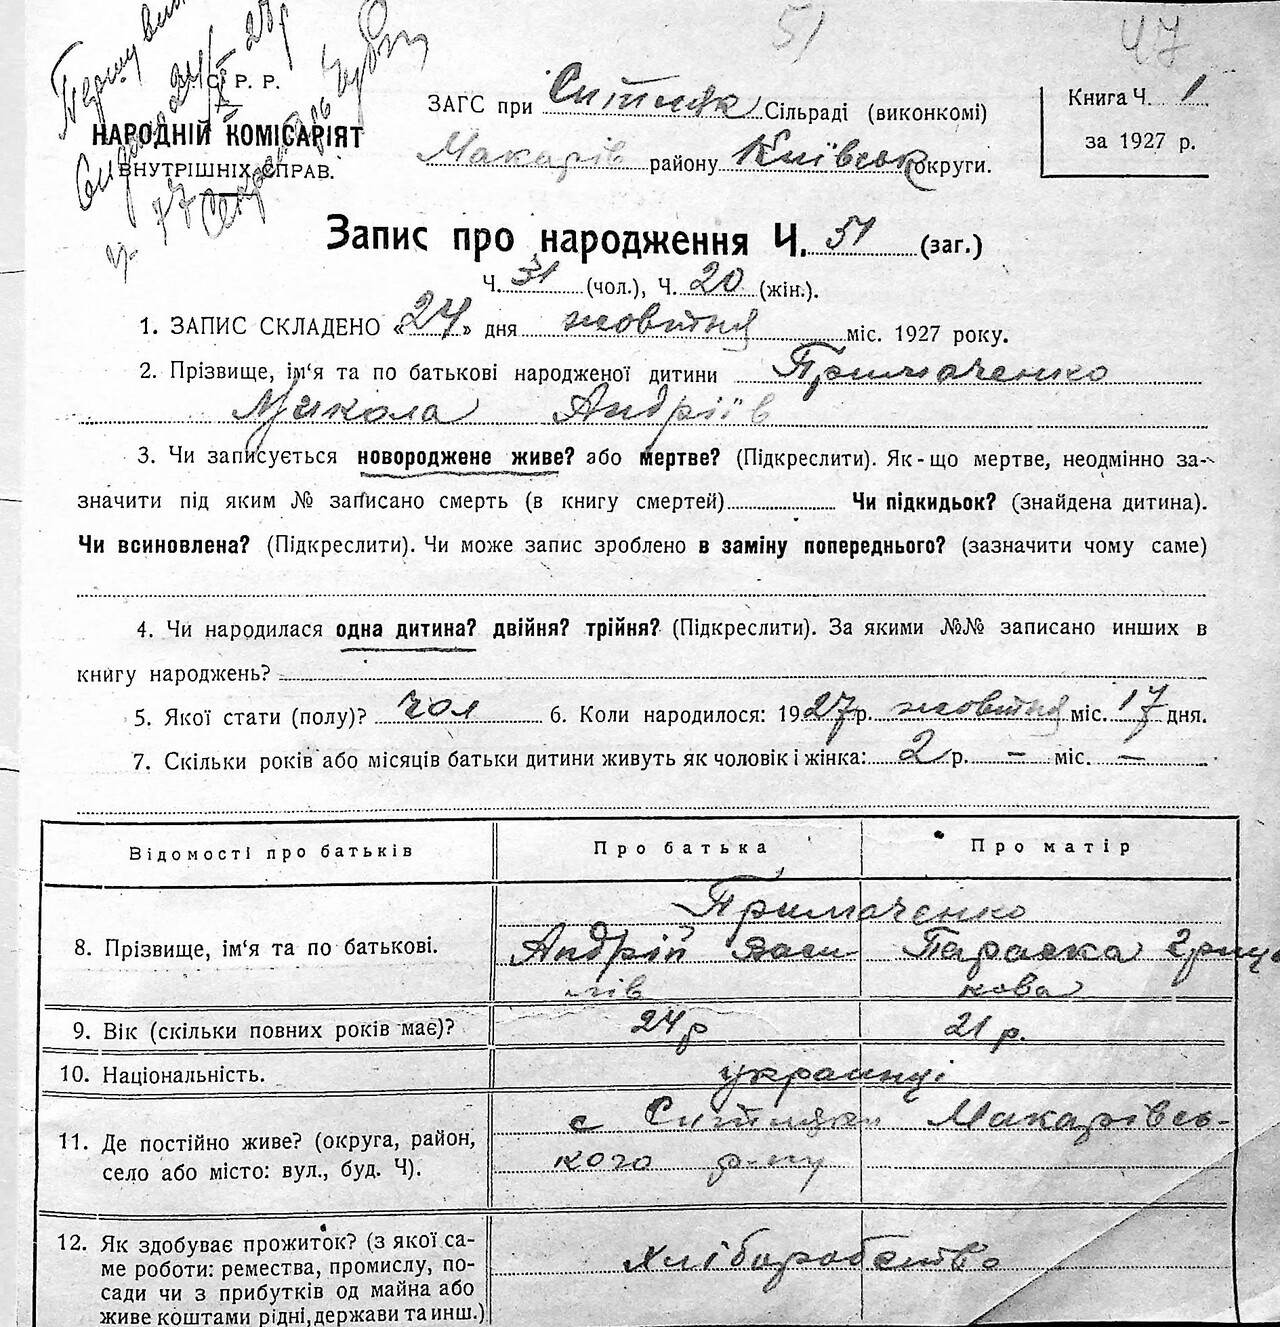 51
47
Першу ви
С. Р. Р.
НАРОДНІЙ КОМІСАРІЯТ
ВНУТРІШНІХ СПРАВ.
ЗАГС при Ситняк Сільраді (виконкомі)
Макарів району Київськ округи.
Книга Ч. 1
за 1927 р.
Запис про народження Ч. 51 (заг.)
Ч. 31 (чол.), Ч. 20 (жін.).
1. ЗАПИС СКЛАДЕНО «24» дня жовтня міс. 1927 року.
2. Прізвище, ім'я та по батькові народженої дитини Примаченко
Микола Андріїв
3. Чи записується новороджене живе? або мертве? (Підкреслити). Як-що мертве, неодмінно за-
значити під яким № записано смерть (в книгу смертей) Чи підкидьок? (знайдена дитина).
Чи всиновлена? (Підкреслити). Чи може запис зроблено в заміну попереднього? (зазначити чому саме)
4. Чи народилася одна дитина? двійня? трійня? (Підкреслити). За якими №№ записано инших в
книгу народжень?
5. Якої стати (полу)? чол 6. Коли народилося: 1927 р. жовтня міс. 17 дня.
7. Скільки років або місяців батьки дитини живуть як чоловік і жінка: 2 р. — міс. —
Відомості про батьків Про батька Про матір
Примаченко
8. Прізвище, ім'я та по батькові. Андрій Васи- Параска Гриць
лів кова
9. Вік (скільки повних років має)? 24 р 21 р.
10. Національність. українці
11. Де постійно живе? (округа, район, с Ситняки Макарівсь-
село або місто: вул., буд. Ч). кого р-ну
12. Як здобуває прожиток? (з якої са- хліборобство
ме роботи: ремества, промислу, по-
сади чи з прибутків од майна або
живе коштами рідні, держави та инш.)